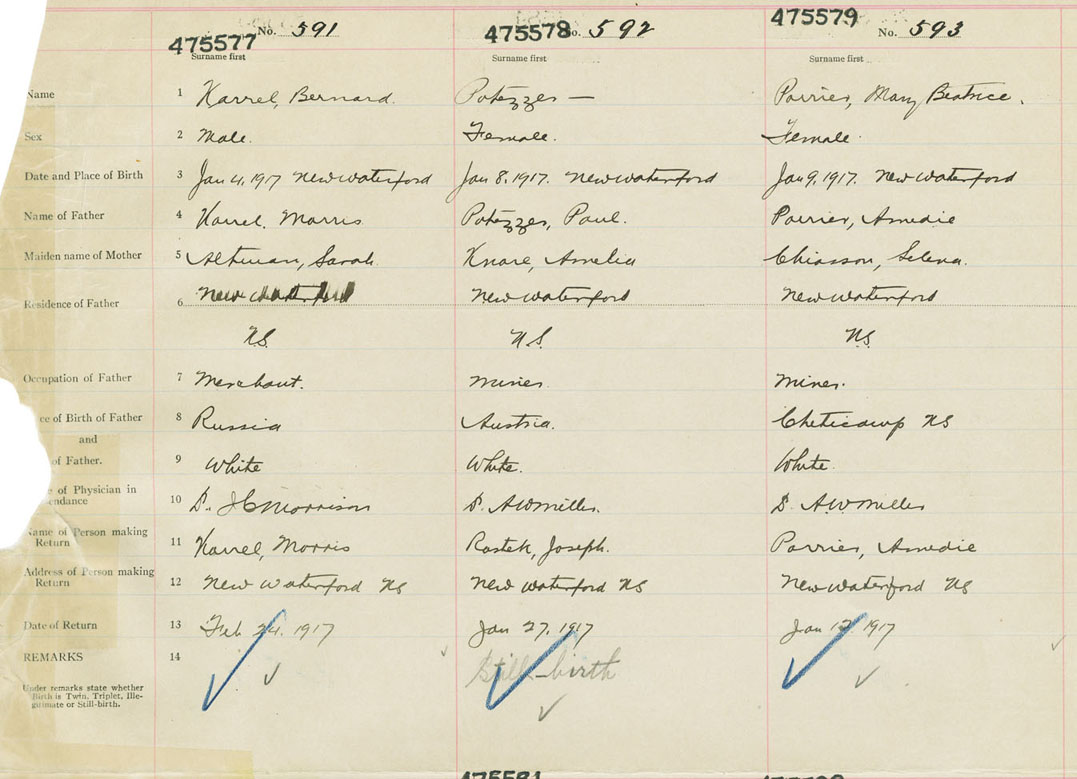 475577 No. 591 475578 No. 592 475579 No. 593
Surname first Surname first Surname first
Name 1 Karrel, Bernard. Potezzes — Porrier, Mary Beatrice.
Sex 2 Male. Female. Female.
Date and Place of Birth 3 Jan 4, 1917 New Waterford Jan 8, 1917. New Waterford Jan 9, 1917. New Waterford
Name of Father 4 Karrel. Morris Potezzes, Paul. Porrier, Amedie
Maiden name of Mother 5 Altman, Sarah. Amelia Chiasson, Selena.
Residence of Father 6 New Waterford New Waterford New Waterford
N.S. N.S. N.S.
Occupation of Father 7 Merchant. Miner Miner.
ce of Birth of Father 8 Russia Austria. Cheticamp NS
and
of Father. 9 White White. White.
e of Physician in
endance 10 D. J C Morrison D. A W Miller. D. A W Miller
Name of Person making
Return 11 Karrel, Morris Rostek, Joseph. Porrier, Amedie
Address of Person making
Return 12 New Waterford NS New Waterford NS New Waterford NS
Date of Return 13 Feb 24, 1917 Jan 27, 1917 Jan 12, 1917
REMARKS 14 Still-birth
Under remarks state whether
Birth is Twin, Triplet, Ille-
gitimate or Still-birth.
475581